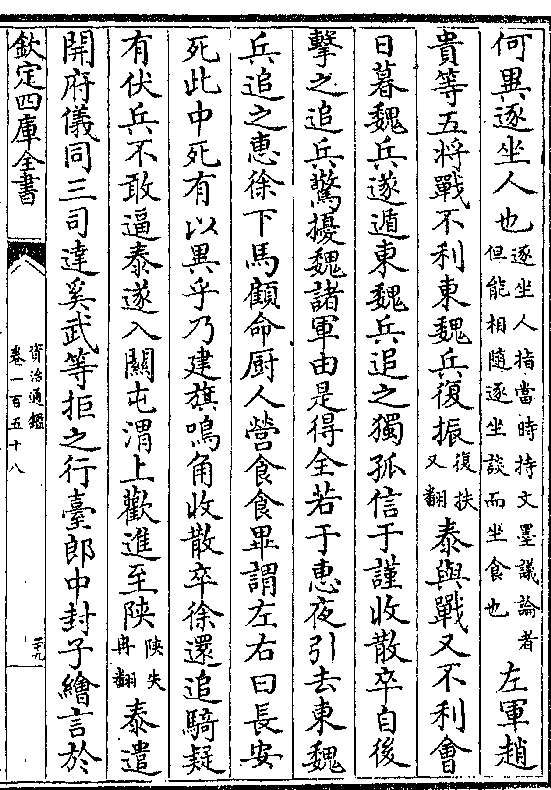 何異逐坐人也逐坐人指當時持文墨議論者但能相隨逐坐談而坐食也左軍趙
貴等五將戰不利東魏兵復振復扶又翻泰與戰又不利會
日暮魏兵遂遁東魏兵追之獨孤信于謹收散卒自後
擊之追兵驚擾魏諸軍由是得全若于惠夜引去東魏
兵追之惠徐下馬顧命厨人營食食畢謂左右曰長安
死此中死有以異乎乃建旗鳴角收散卒徐還追騎疑
有伏兵不敢逼泰遂入關屯渭上歡進至陜陜失冉翻泰遣
開府儀同三司達奚武等拒之行臺郎中封子繪言於
欽定四庫全書
資治通鑑
卷一百五十八
二十九